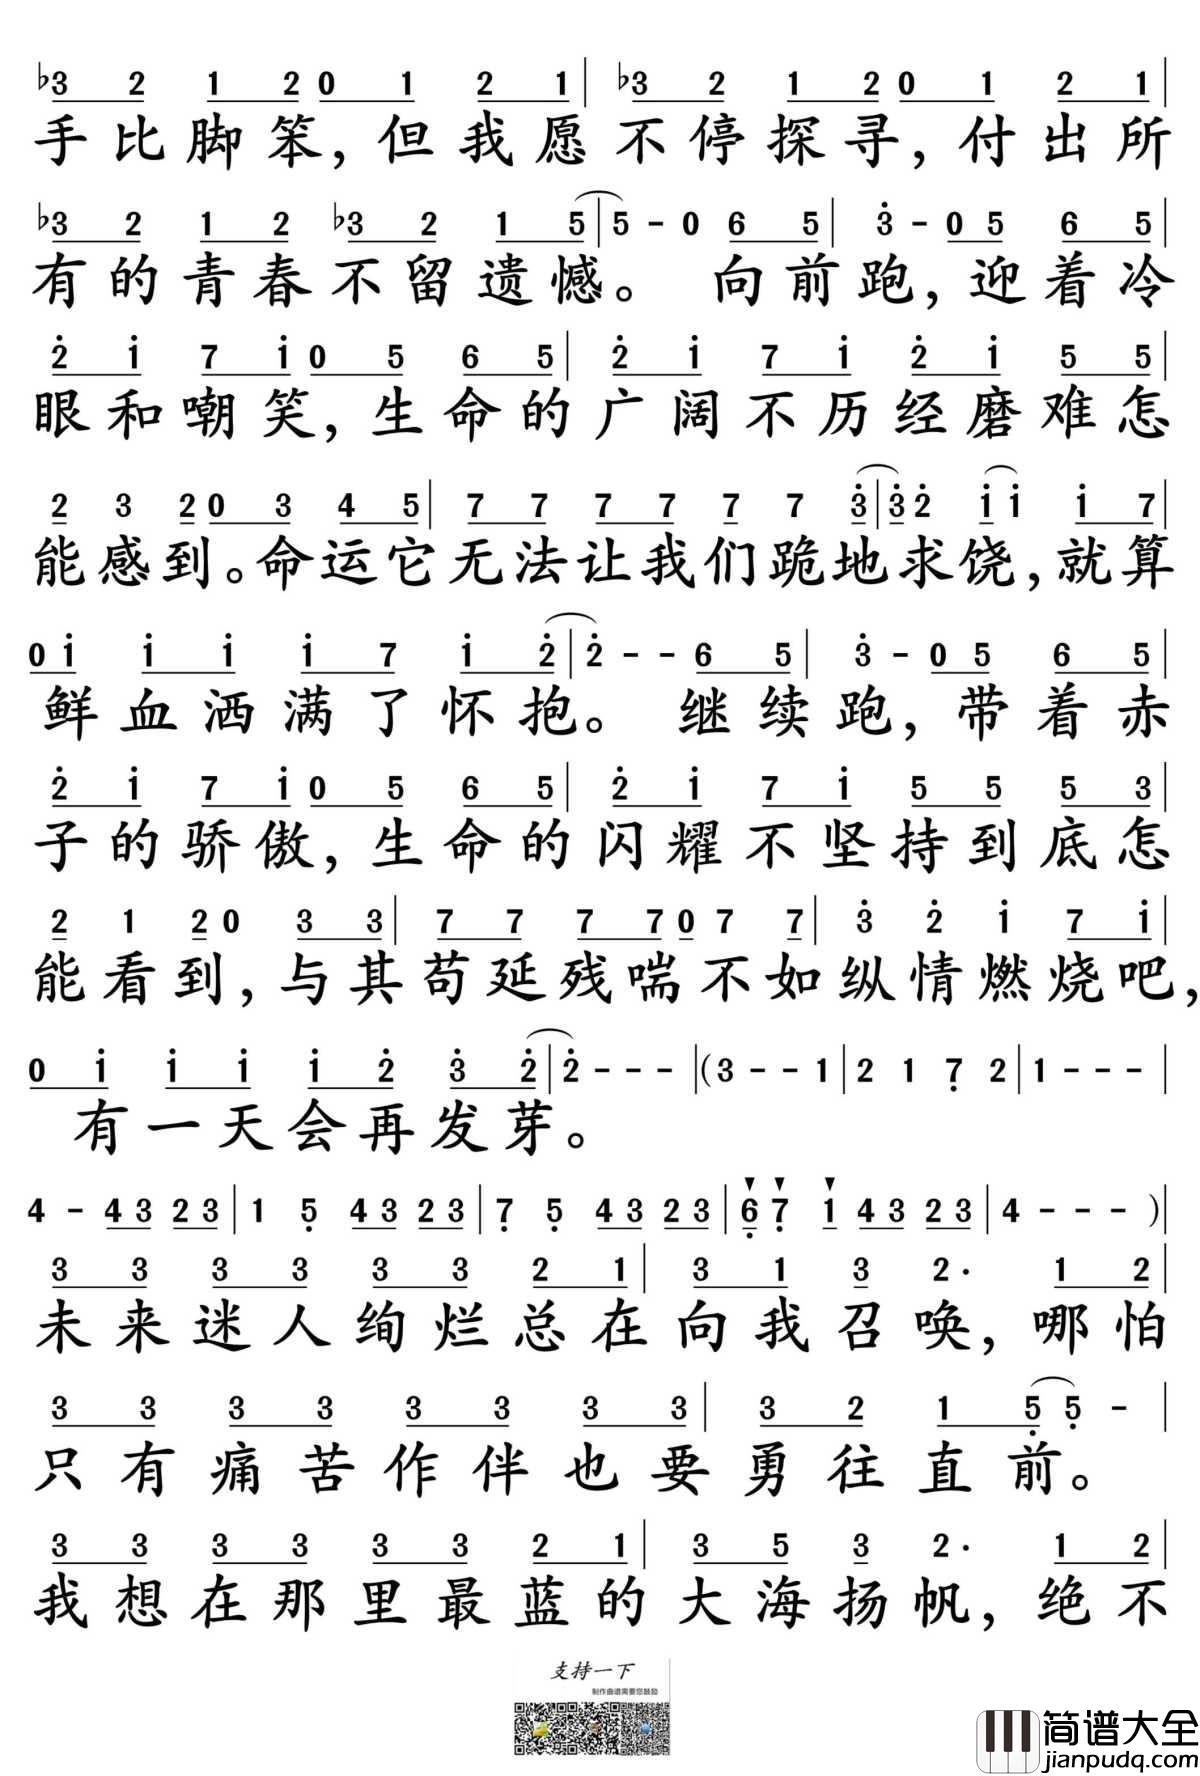 ♭3 2 1 2 0 1 2 1 | ♭3 2 1 2 0 1 2 1 |
手比脚笨，但我愿不停探寻，付出所
♭3 2 1 2 ♭3 2 1 5 | 5 - 0 6 5 | 3̇ - 0 5 6 5 |
有的青春不留遗憾。向前跑，迎着冷
2̇ 1̇ 7 1̇ 0 5 6 5 | 2̇ 1̇ 7 1̇ 2̇ 1̇ 5 5 |
眼和嘲笑，生命的广阔不历经磨难怎
2 3 2 0 3 4 5 | 7 7 7 7 7 7 3̇ | 3̇ 2̇ 1̇ 1̇ 1̇ 7 |
能感到。命运它无法让我们跪地求饶，就算
0 1̇ 1̇ 1̇ 1̇ 7 1̇ 2̇ | 2̇ - - 6 5 | 3̇ - 0 5 6 5 |
鲜血洒满了怀抱。继续跑，带着赤
2̇ 1̇ 7 1̇ 0 5 6 5 | 2̇ 1̇ 7 1̇ 5 5 5 3 |
子的骄傲，生命的闪耀不坚持到底怎
2 1 2 0 3 3 | 7 7 7 7 0 7 7 | 3̇ 2̇ 1̇ 7 1̇ |
能看到，与其苟延残喘不如纵情燃烧吧，
0 1̇ 1̇ 1̇ 1̇ 2̇ 3̇ 2̇ | 2̇ - - - | (3 - - 1 | 2 1 7̣ 2 | 1 - - - |
有一天会再发芽。
4 - 4 3 2 3 | 1 5̣ 4 3 2 3 | 7̣ 5̣ 4 3 2 3 | 6̣ 7̣ 1 4 3 2 3 | 4 - - - ) |
3 3 3 3 3 3 2 1 | 3 1 3 2· 1 2 |
未来迷人绚烂总在向我召唤，哪怕
3 3 3 3 3 3 3 3 | 3 2 1 5̣ 5̣ - |
只有痛苦作伴也要勇往直前。
3 3 3 3 3 3 2 1 | 3 5 3 2· 1 2 |
我想在那里最蓝的大海扬帆，绝不
支持一下
制作曲谱需要您鼓励
简谱大全
jianpudq.com